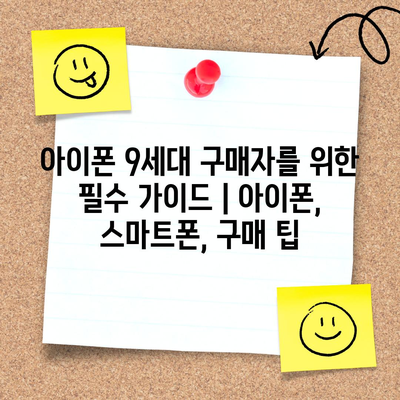 아이폰 9세대 구매자를 위한
필수 가이드 | 아이폰,
스마트폰, 구매 팁